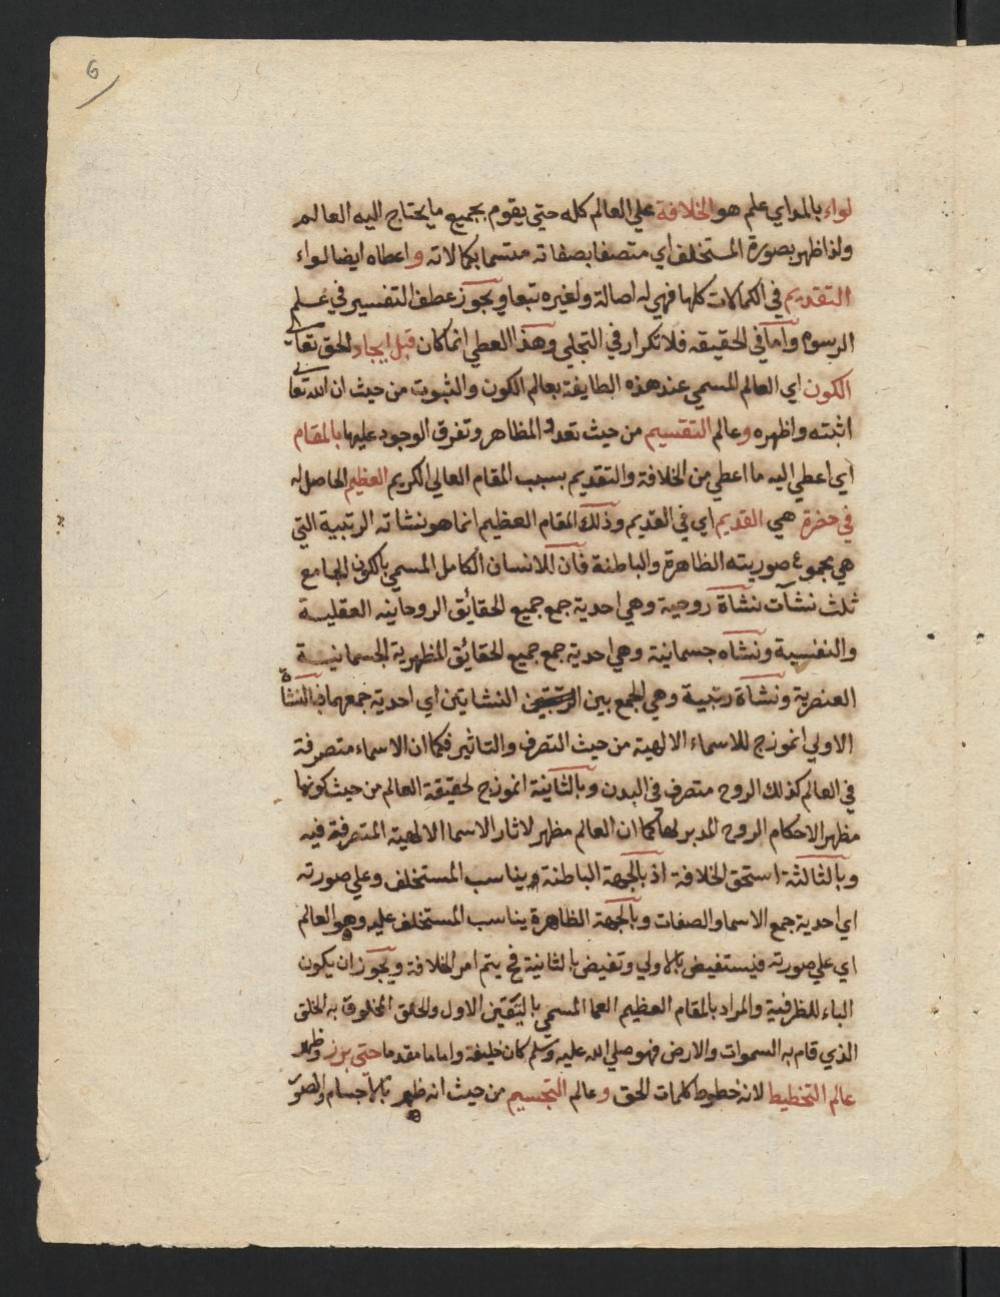 6
لواء بالمد اي علم هو الخلافة علي العالم كله حتي يقوم بجميع ما يحتاج اليه العالم
ولذا ظهر بصورة المستخلف اي متصفا بصفاته متسما بكمالاته واعطاه ايضا لواء
التقديم في الكمالات كلها فهي له اصالة ولغيره تبعا ويجوز عطف التفسير في علم
الرسوم واما في الحقيقه فلا تكرار في التجلي وهذا العطي انما كان قبل ايجاد الحق تعالي
الكون اي العالم المسمي عند هذه الطايفة بعالم الكون والثبوت من حيث ان الله تعا
اثبته واظهره وعالم التقسيم من حيث تعدد المظاهر وتفرق الوجود عليها بالمقام
اي اعطي اليه ما اعطي من الخلافة والتقديم بسبب المقام العالي الكريم العظيم الحاصل له
في حضرة هي القديم اي في القديم وذلك المقام العظيم انما هو نشاته الرتبية التي
هي مجموع صوريته الظاهرة والباطنة فان للانسان الكامل المسمي بالكون الجامع
ثلث نشآت نشاة روحية وهي احدية جمع جميع الحقايق الروحانيه العقلية
والنفسية ونشاه جسمانية وهي احدية جمع جميع الحقائق المظهرية الجسمانية
العنصرية ونشاة رتبية وهي الجمع بين النشايتين اي احدية جمعهما فبالنشاة
الاولي انموزج للاسماء الالهية من حيث التصرف والتاثير فكما ان الاسماء متصرفة
في العالم كذلك الروح متصرف في البدن وبالثانية انموزج لحقيقة العالم من حيث كونها
مظهر الاحكام الروح المدبر لها كما ان العالم مظهر لاثار الاسما الالهية المتصرفة فيه
وبالثالثة استحق الخلافة اذ بالجهة الباطنة يناسب المستخلف وعلي صورته
اي احدية جمع الاسما والصفات وبالجهة الظاهرة يناسب المستخلف عليه وهو العالم
اي علي صورته فيستفيض بالاولي وتفيض بالثانية فح يتم امر الخلافة ويجوز ان يكون
الباء للظرفية والمراد بالمقام العظيم العما المسمي بالتعين الاول والحق المخلوق به الخلق
الذي قام به السموات والارض فهو صلي الله عليه وسلم كان خليفة واماما مقدما حتى برز وظهر
عالم التخطيط لانه خطوط كلمات الحق وعالم التجسيم من حيث انه ظهر بالاجسام والصور